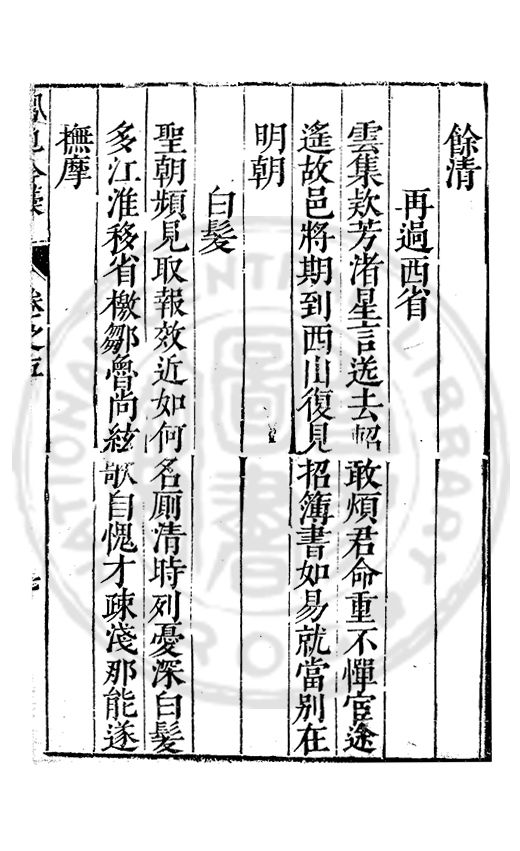 餘清
再過西省
雲集欵芳渚星言送去軺敢煩君命重不憚宦途
遙故邑將期到西山復見招簿書如易就當別在
明朝
白髮
聖朝頻見取報效近如何名厠清時列憂深白髮
多江淮移省檄鄒魯尚絃歌自愧才疎淺那能遂
撫摩
卷之五
七